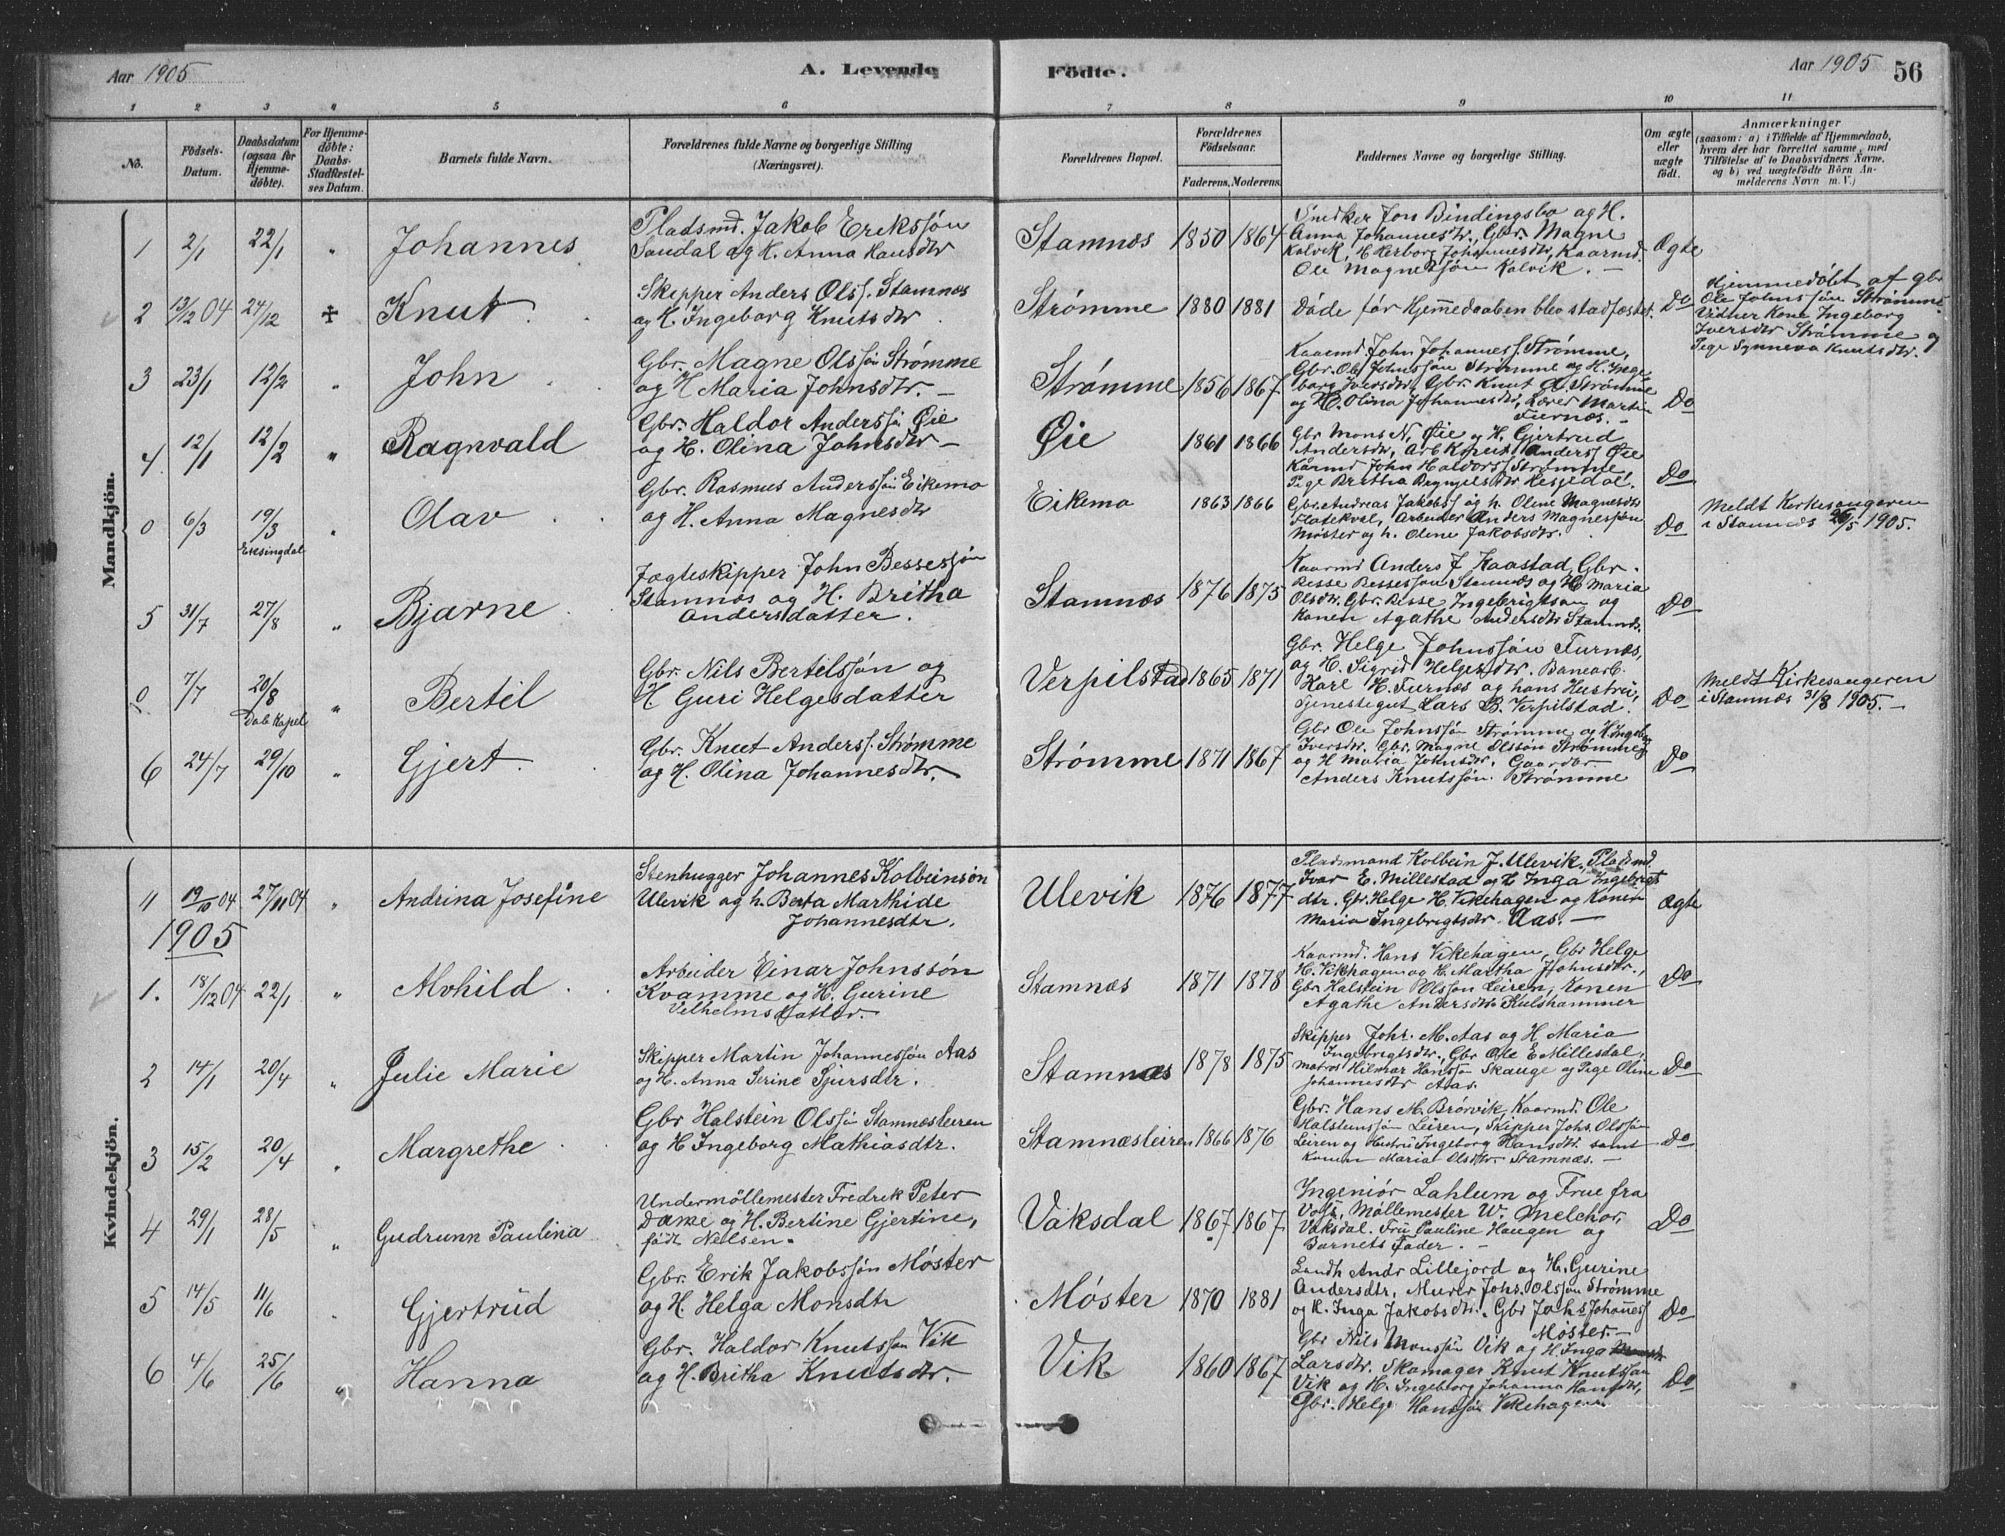 Aar 1905
A. Levende
Födte.
Aar 1905
56
1 2 3 4 5 6 7 8 9 10 11
No.
Födsels-Datum.
Daabsdatum (ogsaa for Hjemme-döbte).
For Hjemme-döbte: Daabs-Stadfæstel-ses Datum.
Barnets fulde Navn.
Forældrenes fulde Navne og borgerlige Stilling (Næringsvei).
Forældrenes Bopæl.
Forældrenes Födselsaar.
Faderens. Moderens.
Faddernes Navne og borgerlige Stilling.
Om ægte eller uægte födt.
Anmærkninger
(saasom: a) i Tilfælde af Hjemmedaab,
hvem der har forrettet samme, med
Tilföielse af to Daabsvidners Navne.
og b) ved uægtefödte Börn An-
melderens Navn m. V.)
Mandkjön.
1 2/1 22/1 " Johannes
Pladsmd. Jakob Eriksson
Sandal og H. Anna Hansdtr
Stamnæs 1850 1864
Snedker Jon Bindingsbø og H.
Anna Johannesdtr., Gbr. Magne
Kalvik, H. Herborg Johannesdtr, Kaarmd.
Ole Magnessøn Kalvik. —
Ægte
2 13/12 04 24/12 ✠ Knut
Skipper Anders Olss. Stamnæs
og H. Ingeborg Knutsdtr
Strømme 1880 1881
Döde før Hjemmedaaben blev stadfæstet.
Do
Hjemmedöbt af gbr
Ole Johnssøn Strømme
Vidner Kone Ingeborg
Iversdtr Strømme og
Pige Synneva Knutsdtr.
3 23/1 12/2 " John
Gbr. Magne Olssøn Strømme
og H Maria Johnsdtr. —
Strømme 1856 1867
Kaarmd John Johanness. Strømme,
Gbr. Ole Johnssøn Strømme og H. Inge
borg Iversdtr, Gbr. Knut A. Strømme
og H. Olina Johannesdtr, Lærer Martin
Furnæs. —
Do
4 12/1 12/2 " Ragnvald
Gbr. Haldor Anderssøn Øie
og H. Olina Johnsdtr —
Øie 1861 1866
Gbr Mons N. Øie og H. Gjertrud
Andersdtr, Arb Knut Anderss Øie
Kårmd John Haldorss Strømme,
Pige Britha Brynjelsdtr Hesjedal.
Do
0 6/3 19/3 Eksingdal " Olav
Gbr. Rasmus Anderssøn Eikemo
og H. Anna Magnesdtr
Eikemo 1863 1866
Gbr. Andreas Jakobss og h. Oline Magnesdtr
Flatekval, Arbeider Anders Magnessøn
Møster og h. Oline Jakobsdtr.
Do
Meldt Kirkesangeren
i Stamnæs 26/5 1905.
5 31/7 27/8 " Bjarne
Jægteskipper John Bessessøn
Stamnæs og H. Britha
Andersdatter.
Stamnæs 1876 1875
Kaarmd Anders J Kaastad, Gbr.
Besse Bessessøn Stamnæs og H Maria
Olsdtr. Gbr. Besse Ingebrigtsøn og
Konen Agathe Andersdtr Stamnæs.
Do
0 7/7 20/8 Dale Kapel " Bertil
Gbr. Nils Bertelssøn og
H. Guri Helgesdatter
Verpilstad 1865 1871
Gbr. Helge Johnssøn Furnæs,
og H. Sigrid Helgesdtr. Banearb.
Karl H. Furnæs og hans Hustru,
Tjenestegut Lars B. Verpilstad.
Do
Meldt Kirkesangeren
i Stamnæs 31/8 1905. —
6 24/7 29/10 " Gjert
Gbr. Knut Anderss. Strømme
og H. Olina Johannesdtr.
Strømme 1871 1867
Gbr Ole Johnssøn Strømme og H Ingeborg
Iversdtr. Gbr. Magne Olssøn Strømme
og H Maria Johnsdtr. Gaardbr
Anders Knutssøn Strømme
Do
Kvindekjön.
11 19/10 04 27/11 04 " Andrina Josefine
Stenhugger Johannes Kolbeinsøn
Ulevik og h. Berta Marthide
Johannesdtr.
Ulevik 1876 1877
Pladsmand Kolbein J. Ulevik, Pladsmd
Ivar E. Millestad og H Inga Ingebrigt
dtr. Gbr. Helge H. Vikehagen og Konen
Maria Ingebrigtsdtr. Aas. —
Ægte
1905
1. 18/12 04 22/1 " Alvhild
Arbeider Einar Johnssøn
Kvamme og H. Gurine
Vilhelmsdatter.
Stamnæs 1871 1878
Kaarmd. Hans Vikehagen, Gbr Helge
H. Vikhagen og H. Martha Johnsdtr.,
Gbr Halstein Olsson Leiren, Konen
Agathe Andersdtr Kulshammer
Do
2 14/1 20/4 " Julie Marie
Skipper Martin Johannessøn Aas
og H. Anna Serine Sjursdtr.
Stamnæs 1878 1875
Skipper Johs. M. Aas og H Maria
Ingebrigtsdtr., Gbr Ole E Millesdal,
matros Hilmar Hanssøn Skauge og Pige Oline
Johannesdtr Aas.
Do
3 15/2 20/4 " Margrethe
Gbr Halstein Olssøn Stamnæsleiren
og H Ingeborg Mathiasdtr.
Stamnæsleiren 1866 1876
Gbr. Hans M. Brørvik, Kaarmd. Ole
Halsteinssøn Leiren, Skipper Johs. Olssøn
Leiren og Hustru Ingeborg Hansdtr. samt
Konen Maria Olsdtr. Stamnæs. —
Do
4 29/1 28/5 " Gudrunn Paulina
Undermøllemester Fredrek Peter
Damme og H. Bertine Gjertine,
født Nelsen.
Vaksdal 1867 1867
Ingeniör Lahlum og Frue fra
Voss, Møllemester W. Melchor,
Vaksdal. Fru Pauline Haugen og
Barnets Fader. —
Do
5 14/5 11/6 Gjertrud
Gbr. Erik Jakobssøn Møster
og H. Helga Monsdtr
Møster 1870 1881
Landh Andr Lillejord og H. Gurine
Andersdtr, Murer Johs. Olssøn Strømme
og H. Inga Jakobsdtr. Gbr Johs Johannes
Møster. —
Do
6 4/6 25/6 " Hanna
Gbr. Haldor Knutssøn Vik
og H. Britha Knutsdtr.
Vik 1860 1867
Gbr Nils Monssøn Vik og H. Inga
Larsdtr. Skomager Knut Knutssøn
Vik og H. Ingeborg Johanna Hansdtr,
Gbr. Helge Hanssøn Vikehagen
Do